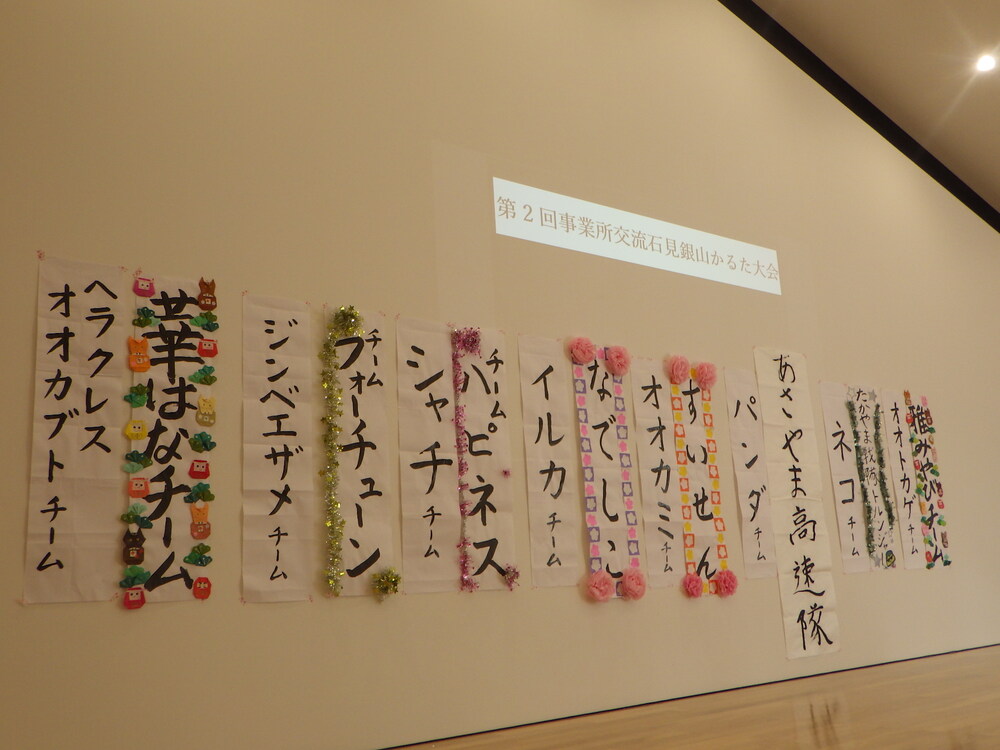 第2回事業所交流石見銀山かるた大会
雅みやびチーム
オオトカゲチーム
ネコチーム
あさやま高速隊
パンダチーム
すいせん
オオカミチーム
なでしこ
イルカチーム
チーム
ハピネス
シャチチーム
チーム
フォーチューン
ジンベエザメチーム
華はなチーム
ヘラクレス
オオカブトチーム